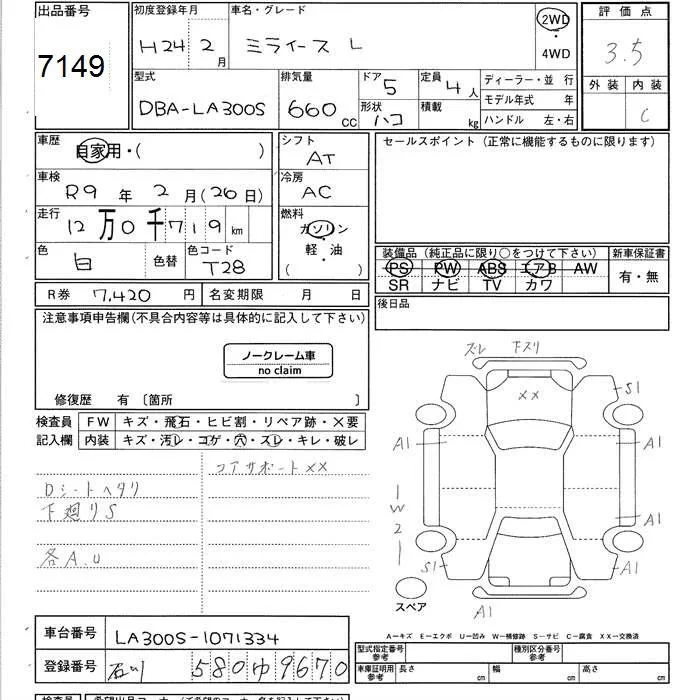 出品番号
7149
初度登録年月
H24 2月
車名・グレード
ミライース L
2WD
・
4WD
評価点
3.5
外装 内装
C
型式
DBA-LA300S
排気量
660 cc
ドア 5
形状 ハコ
定員 4人
積載 kg
ディーラー・並 行
モデル年式 年
ハンドル 左・右
車歴
自家用・( )
シフト
AT
セールスポイント (正常に機能するものに限ります)
車検
R9年 2月(26日)
冷房
AC
走行
12万0千719km
燃料
ガソリン
軽・油
( )
色
白 色替
色コード
T28
装備品 (純正品に限り○をつけて下さい)
PS PW ABS エアB AW
SR ナビ TV カワ
新車保証書
有・無
R券 7,420円
名変期限 月 日
後日品
注意事項申告欄(不具合内容等は具体的に記入して下さい)
ノークレーム車
no claim
修復歴 有 〔箇所 〕
検査員
記入欄
FW キズ・飛石・ヒビ割・リペア跡・×要
内装 キズ・汚レ・コゲ・穴・スレ・キレ・破レ
コアサポートXX
Dシートヘタリ
下廻りS
各A.U
ズレ 下スリ
XX
S1
A1
A1
W2
A1
S1
A1
A1
スペア
A－キズ E－エクボ U－凹み W－補修跡 S－サビ C－腐食 XX－交換済
車台番号
LA300S-1071334
登録番号
石川 580ゆ9670
型式指定番号
参考
種別区分番号
参考
車庫証明用
参考
長さ
幅
高さ